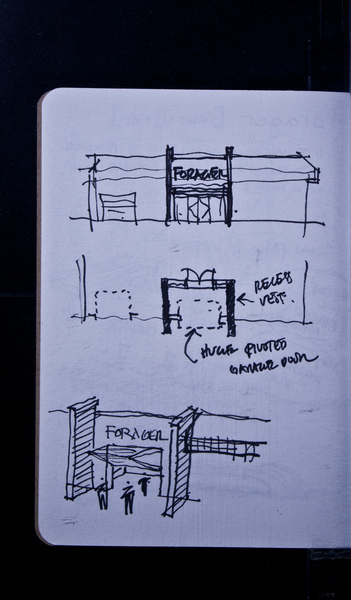 FORAGER
RECESS
VEST.
HUGE PIVOTED
GARAGE DOOR
FORAGER